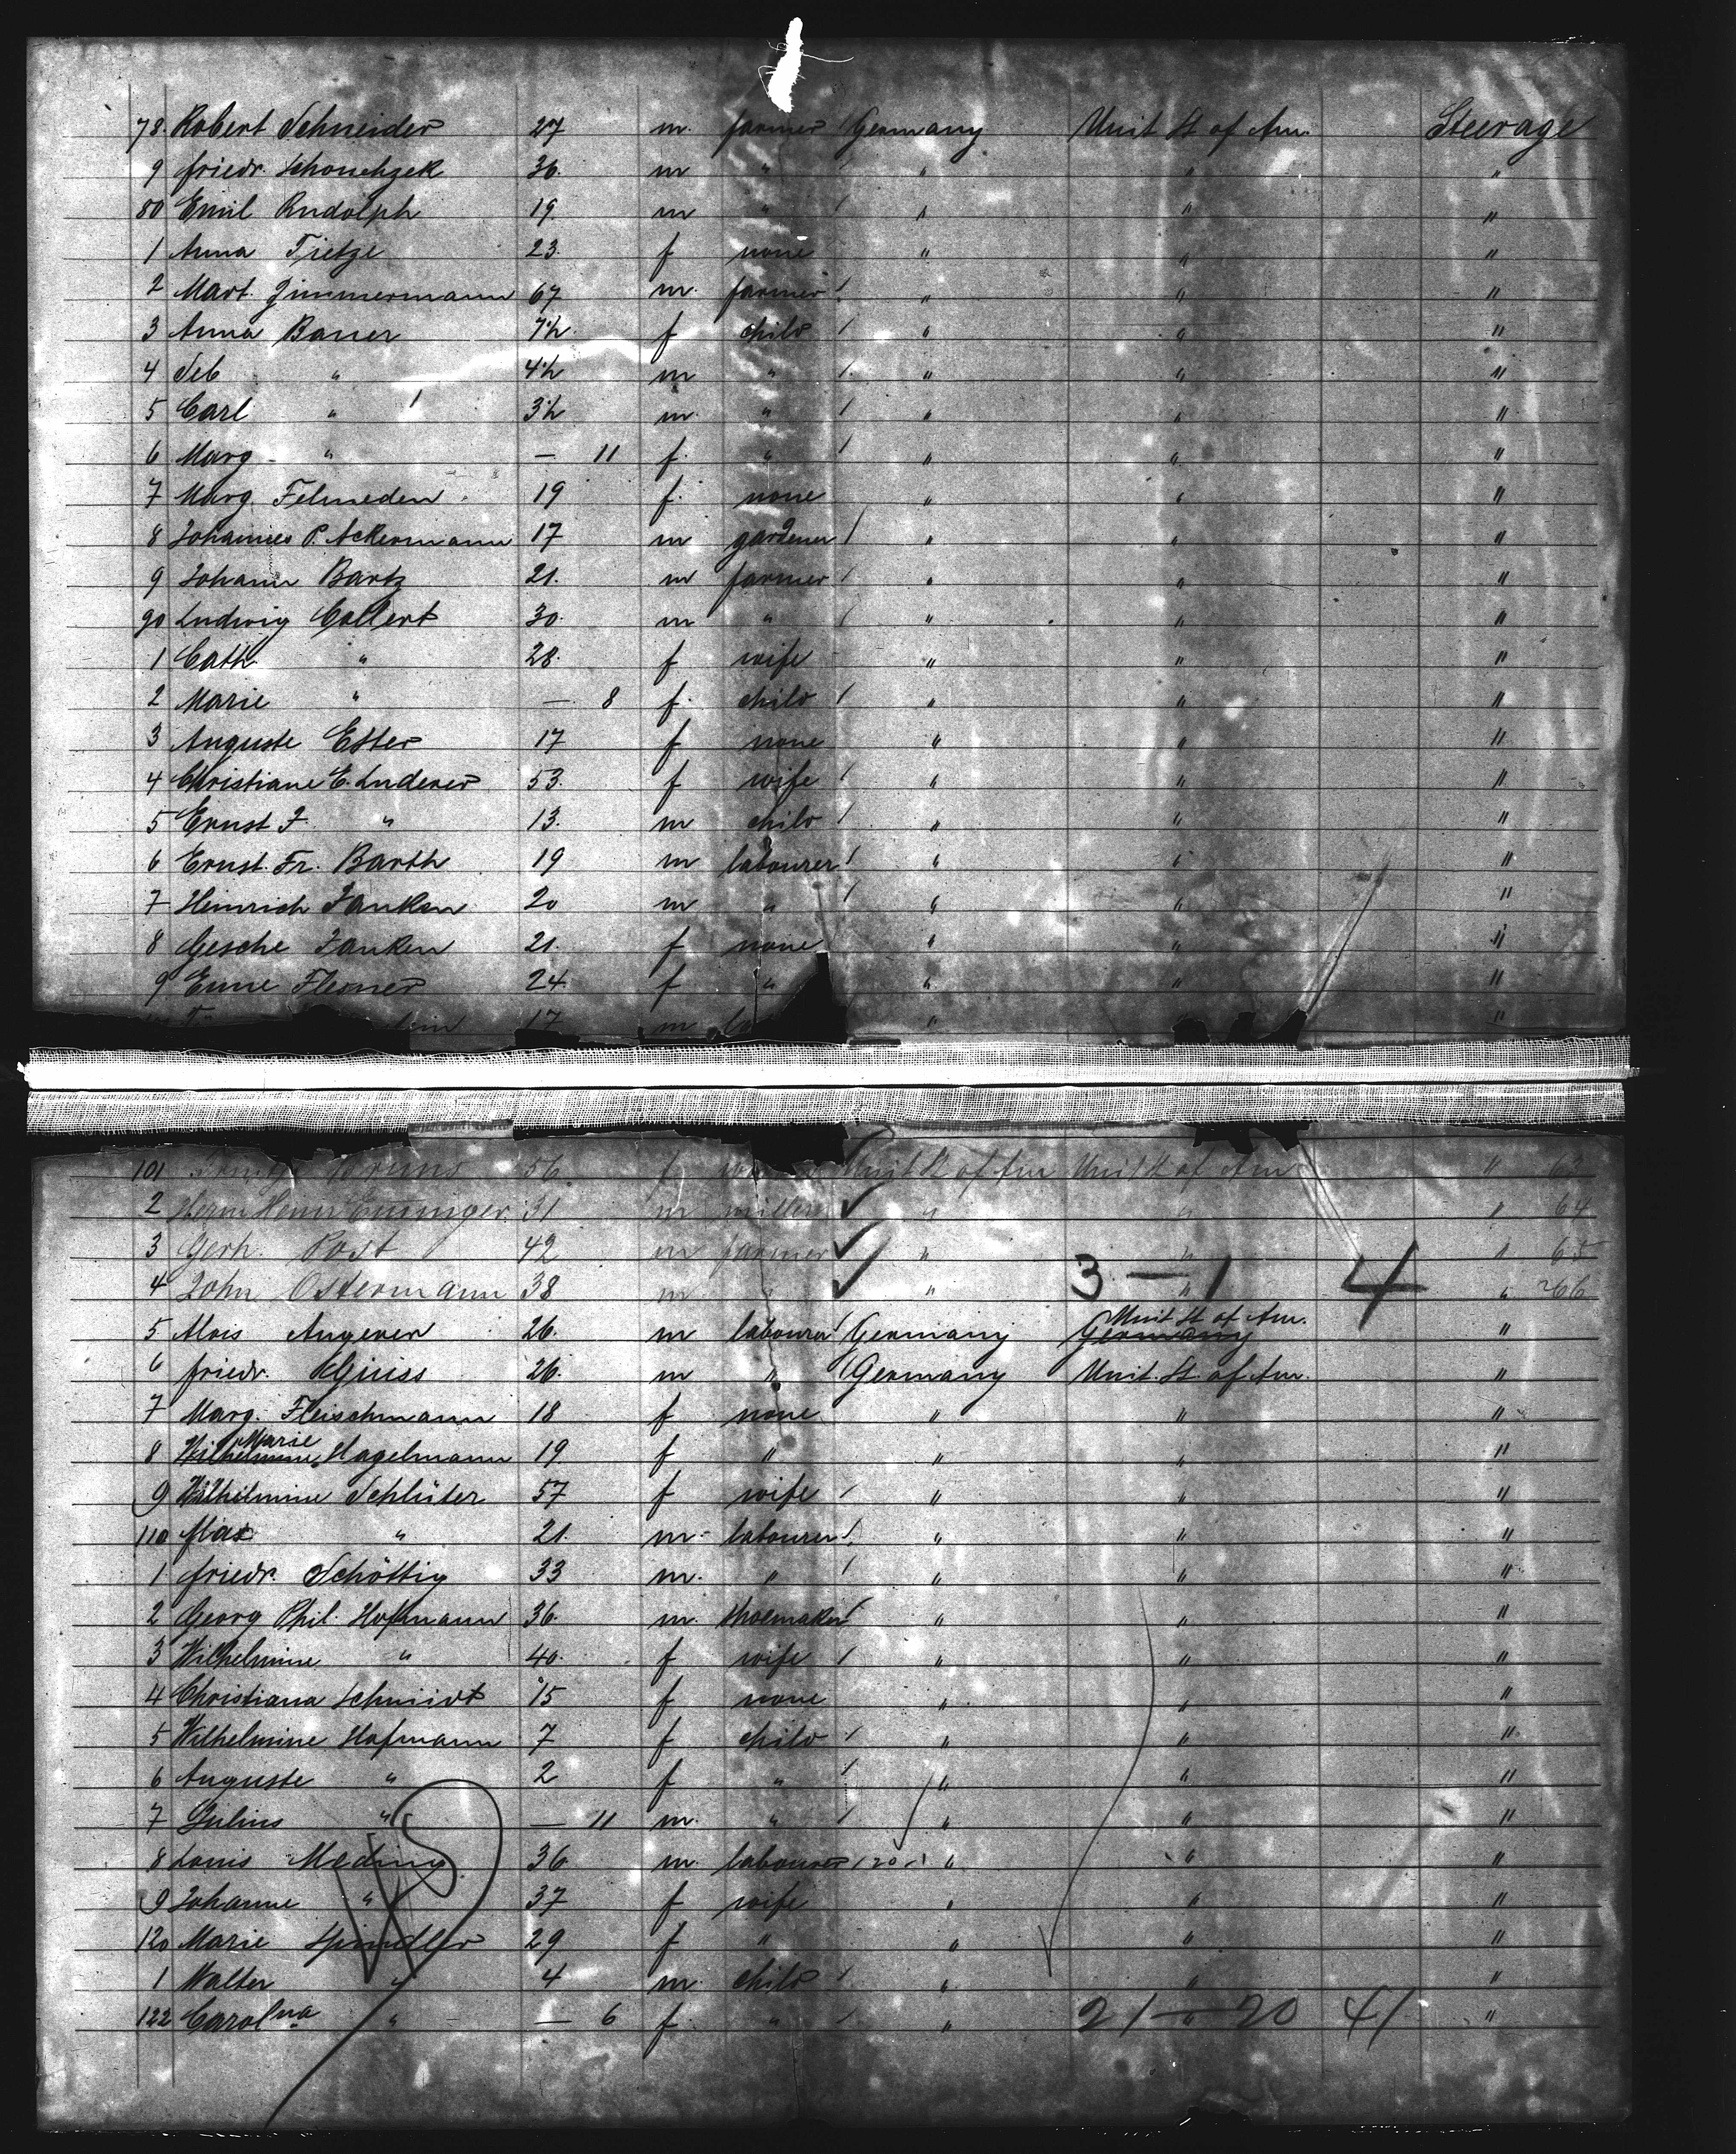 78 Robert Schneider 27 m. farmer / Germany Unit St of Am. Steerage
9 friedr. Schonehzek 36. m " / " " "
80 Emil Rudolph 19 m " / " " "
1 Anna Tietze 23. f none " " "
2 Mart. Zimmermann 67 m. farmer / " " "
3 Anna Bauer 7½ f child / " " "
4 Seb " 4½ m " / " " "
5 Carl " 3½ m. " / " " "
6 Marg " — 11 f. " / " " "
7 Marg. Felmeden 19 f. none " " "
8 Johannes P. Ackermann 17 m gardener / " " "
9 Johann Bartz 21. m farmer / " " "
90 Ludwig Collert 30. m " / " " "
1 Cath. " 28. f wife " " "
2 Marie " — 8 f. child / " " "
3 Auguste Ester 17 f none " " "
4 Christiane E. Luderer 53. f wife / " " "
5 Ernst F. " 13. m child / " " "
6 Ernst. Fr. Barth 19 m labourer / " " "
7 Heinrich Janken 20 m " / " " "
8 Gesche Janken 21. f none " " "
9 Enne Flesner 24. f " " " "
17 m " " "
101 Bruns 56. f Unit St of Am Unit St of Am " 63
2 Herm Heinr Enninger 31 m miller " " " 64
3 Gerh. Post 42 m farmer " " " 65
4 John Ostermann 38 m " " " " 66
3 — 1 4
5 Alois Angerer 26. m labourer / Germany Germany Unit St of Am. "
6 friedr. Gniss 26. m " / Germany Unit. St. of Am. "
7 Marg. Fleischmann 18 f none " " "
8 Wilhelmine Marie Hagelmann 19. f " " " "
9 Wilhelmine Schlüter 57 f wife / " " "
110 Max " 21. m. labourer / " " "
1 friedr. Schöttig 33 m. " / " " "
2 Georg Phil. Hofmann 36. m. shoemaker / " " "
3 Wilhelmine " 40. f wife / " " "
4 Christiana Schmidt 15 f none " " "
5 Wilhelmine Hofmann 7 f child / " " "
6 Auguste " 2 f " / " " "
7 Julius " — 11 m. " / " " "
8 Louis Meding 36 m. labourer / 20 / " " "
9 Johanne " 37 f wife " " "
120 Marie Spindler 29 f " " " "
1 Walter " 4 m. child / " " "
122 Carolina " — 6 f. " / " " "
21 — 20 41